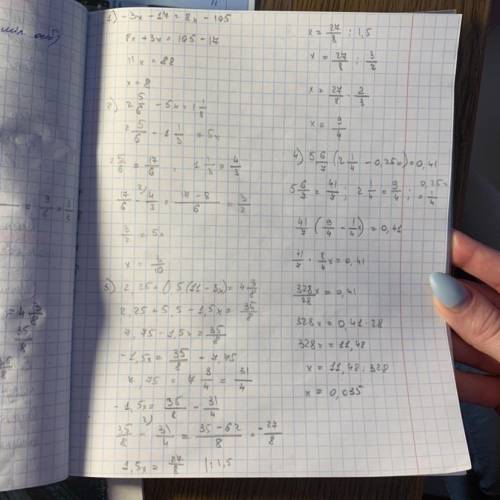 1) -3x - 17 = 8x - 105
8x + 3x = 105 - 17
11x = 88
x = 8
2) 2 5/6 - 5x = 1 1/3
2 5/6 - 1 1/3 = 5x
2 5/6 = 17/6 , 1 1/3 = 4/3
17/6 - 4/3 = 17 - 8/6 = 3/2
3/2 = 5x
x = 3/10
3) 2,25 + 0,5(11 - 3x) = 4 3/8
2,25 + 5,5 - 1,5x = 35/8
7,75 - 1,5x = 35/8
-1,5x = 35/8 - 7,75
7,75 = 7 3/4 = 31/4
-1,5x = 35/8 - 31/4
35/8 - 31/4 = 35 - 62/8 = -27/8
1,5x = 27/8 |: 1,5
x = 27/8 : 1,5
x = 27/8 : 3/2
x = 27/8 · 2/3
x = 9/4
4) 5 6/7 (2 1/4 - 0,25x) = 0,41
5 6/7 = 41/7 ; 2 1/4 = 9/4 ; 0,25 = 1/4
41/7 (9/4 - 1/4 x) = 0,41
41/7 · 8/4 x = 0,41
328/28 x = 0,41
328x = 0,41 · 28
328x = 11,48
x = 11,48 : 328
x = 0,035